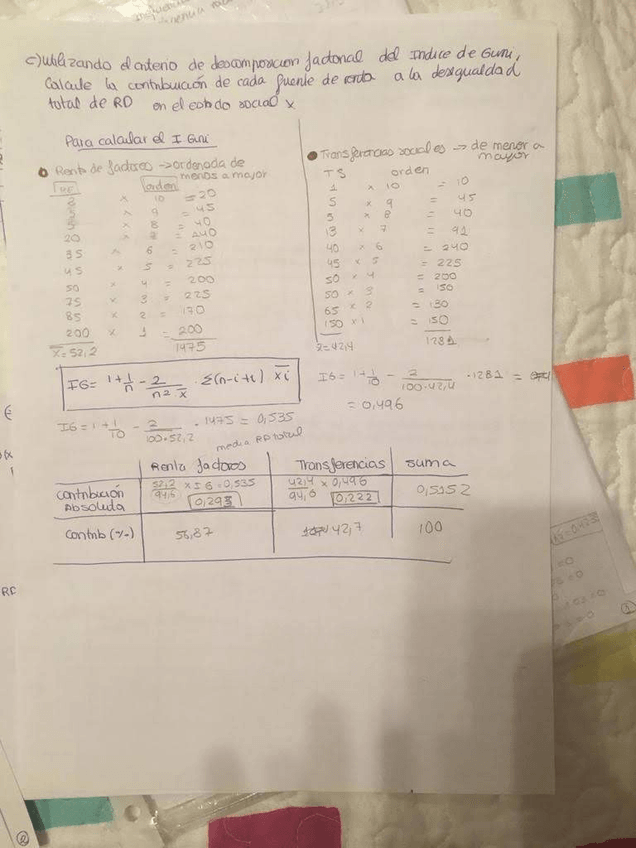 c) utilizando el criterio de descomposicion factorial del Indice de Gini,
Calcule la contribución de cada fuente de renta a la desigualdad
total de RD en el estado social x
Para calcular el I Gini
Renta de factores → ordenada de
menos a mayor
RF orden
2 x 10 = 20
5 x 9 = 45
5 x 8 = 40
20 x = 140
35 x 6 = 210
45 x 5 = 225
50 x 4 = 200
75 x 3 = 225
85 x 2 = 170
200 x 1 = 200
x̄ = 52,2 1475
IG = 1 + 1/n - 2/n2 x̄ · Σ(n-i+1) xi
IG = 1 + 1/10 - 2/100·52,2 · 1475 = 0,535
Transferencias sociales → de menor a
mayor
TS orden
1 x 10 = 10
5 x 9 = 45
5 x 8 = 40
13 x 7 = 91
40 x 6 = 240
45 x 5 = 225
50 x 4 = 200
50 x 3 = 150
65 x 2 = 130
150 x 1 = 150
= 42,4 1281
IG = 1 + 1/10 - 2/100·42,4 · 1281 =
= 0,496
media RD total
Renta factores Transferencias suma
Contribución Absoluta 52,2/94,6 x IG = 0,535 0,293 42,4/94,6 x 0,496 0,222 0,5152
Contrib (%) 56,87 42,7 100
RD